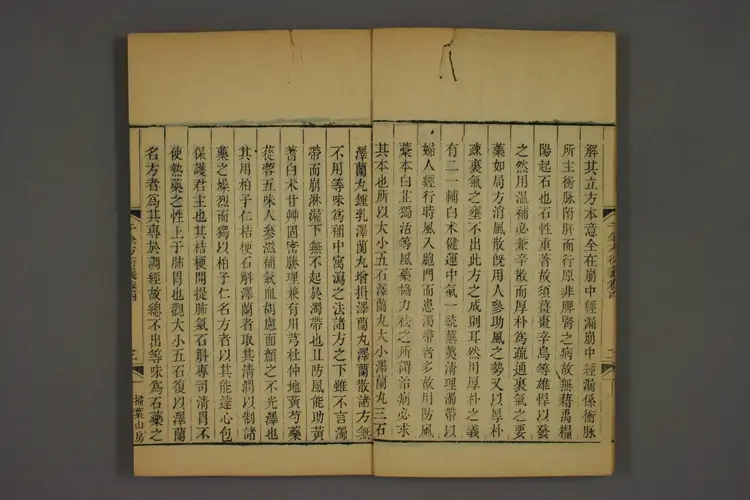 解其立方本意全在崩中經漏崩中經漏係衝脉
所主衝脉附肝而行原非脾腎之病故無藉禹糧
陽起石也石性重著故須薑棗辛烏等雄悍以發
之然用溫補必兼辛散而厚朴為疏通裏氣之要
藥如局方消風散旣用人參助風之勢又以厚朴
疎裏氣之壅不出此方之成則耳然用厚朴之義
有二一輔白术健運中氣一統蕪荑清理濁帶以
婦人經行時風入胞門而患濁帶者多故用防風
藁本白芷獨活等風藥協力袪之所謂治病必求
其本也所以大小五石澤蘭丸大小澤蘭丸三石
澤蘭丸鍾乳澤蘭丸增損澤蘭丸澤蘭散諸方無
不用等味為補中寓瀉之法諸方之下雖不言濁
帶而崩淋漏下無不起於濁帶也且防風能助黃
耆白术甘艸固密腠理兼有川芎杜仲地黃芍藥
蓯蓉五味人參滋補氣血胡慮面顏之不光澤也
其用柏子仁桔梗石斛澤蘭者取其清潤以制諸
藥之燥烈而獨以柏子仁名方者以其能達心包
保護君主也其桔梗開提肺氣石斛專司清胃不
使熱藥之性上于肺胃也觀大小五石復以澤蘭
名方者為其專於調經故總不出等味為石藥之
千金方衍義卷四
三
掃葉山房